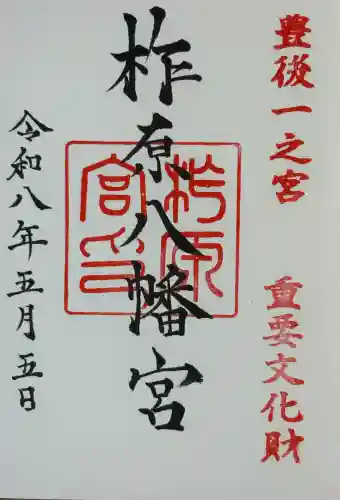 豊後一之宮　重要文化財
柞原八幡宮
柞原
宮印
令和八年五月五日